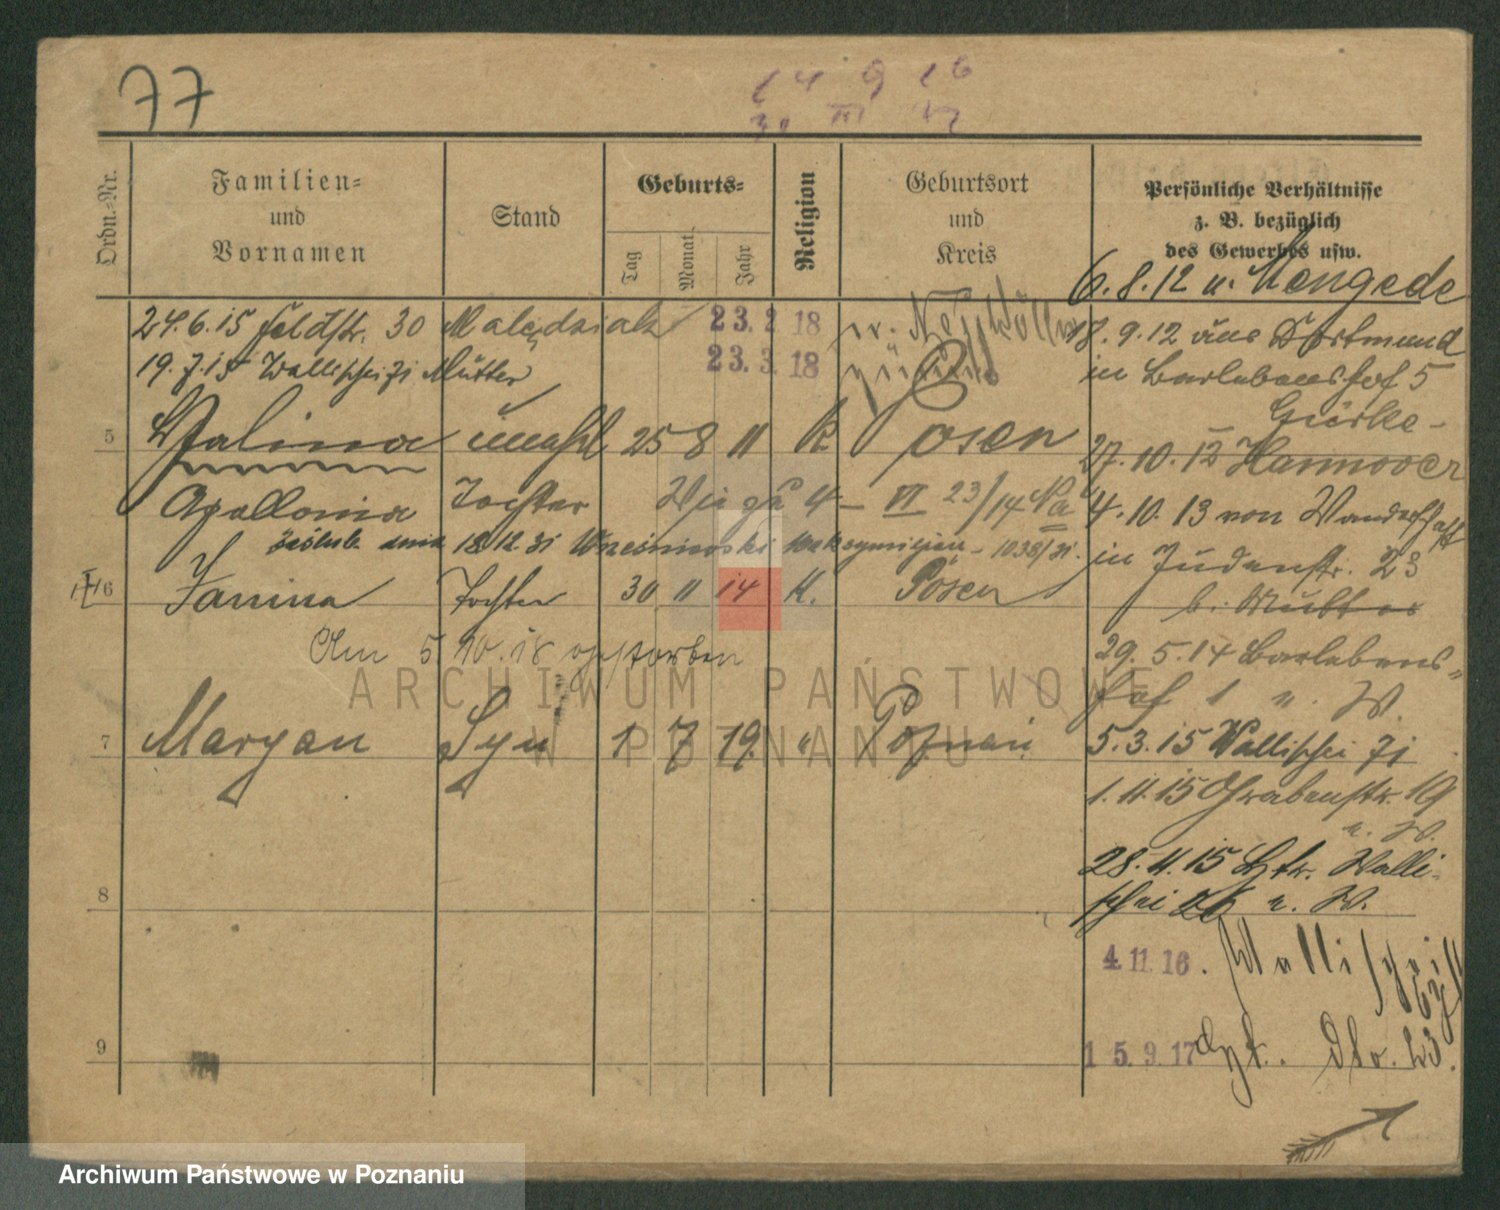 77
14 9 16
30 III 17
Ordn.-Nr.
Familien-
und
Vornamen
Stand
Geburts-
Tag
Monat
Jahr
Religion
Geburtsort
und
Kreis
Persönliche Verhältnisse
z. B. bezüglich
des Gewerbes usw.
6.8.12 n. Mengede
24.6.15 Feldstr. 30 Malędziak 23.2 18
18.9.12 aus Dortmund
19.7.15 Wallischei 71 Mutter 23.3.18
zurück
in Barlebenshof 5
Gürke-
5 Halina unehl 25 8 11 K Posen
27.10.12 Hannover
Apollonia Tochter 4 VI 23/14
4.10.13 von Wanderschaft
zaślub. dnia 18.12.31 Wześniewski Maksymiljan - 1038/31.
in Judenstr. 23
6 Janina Tochter 30 11 14 K. Posen
b. Mutter
Am 5.10.18 gestorben
29.5.14 Barlebens-
hof 1 n. W.
7 Maryan Syn 1 7 19. " Poznań
5.3.15 Wallischei 71
1.11.15 Grabenstr. 19
n. W.
28.11.15 Walli-
schei 26 n. W.
8
4.11.16. Wallischei
15.9.17 Dlo. 23.
9
ARCHIWUM PAŃSTWOWE
W POZNANIU
Archiwum Państwowe w Poznaniu